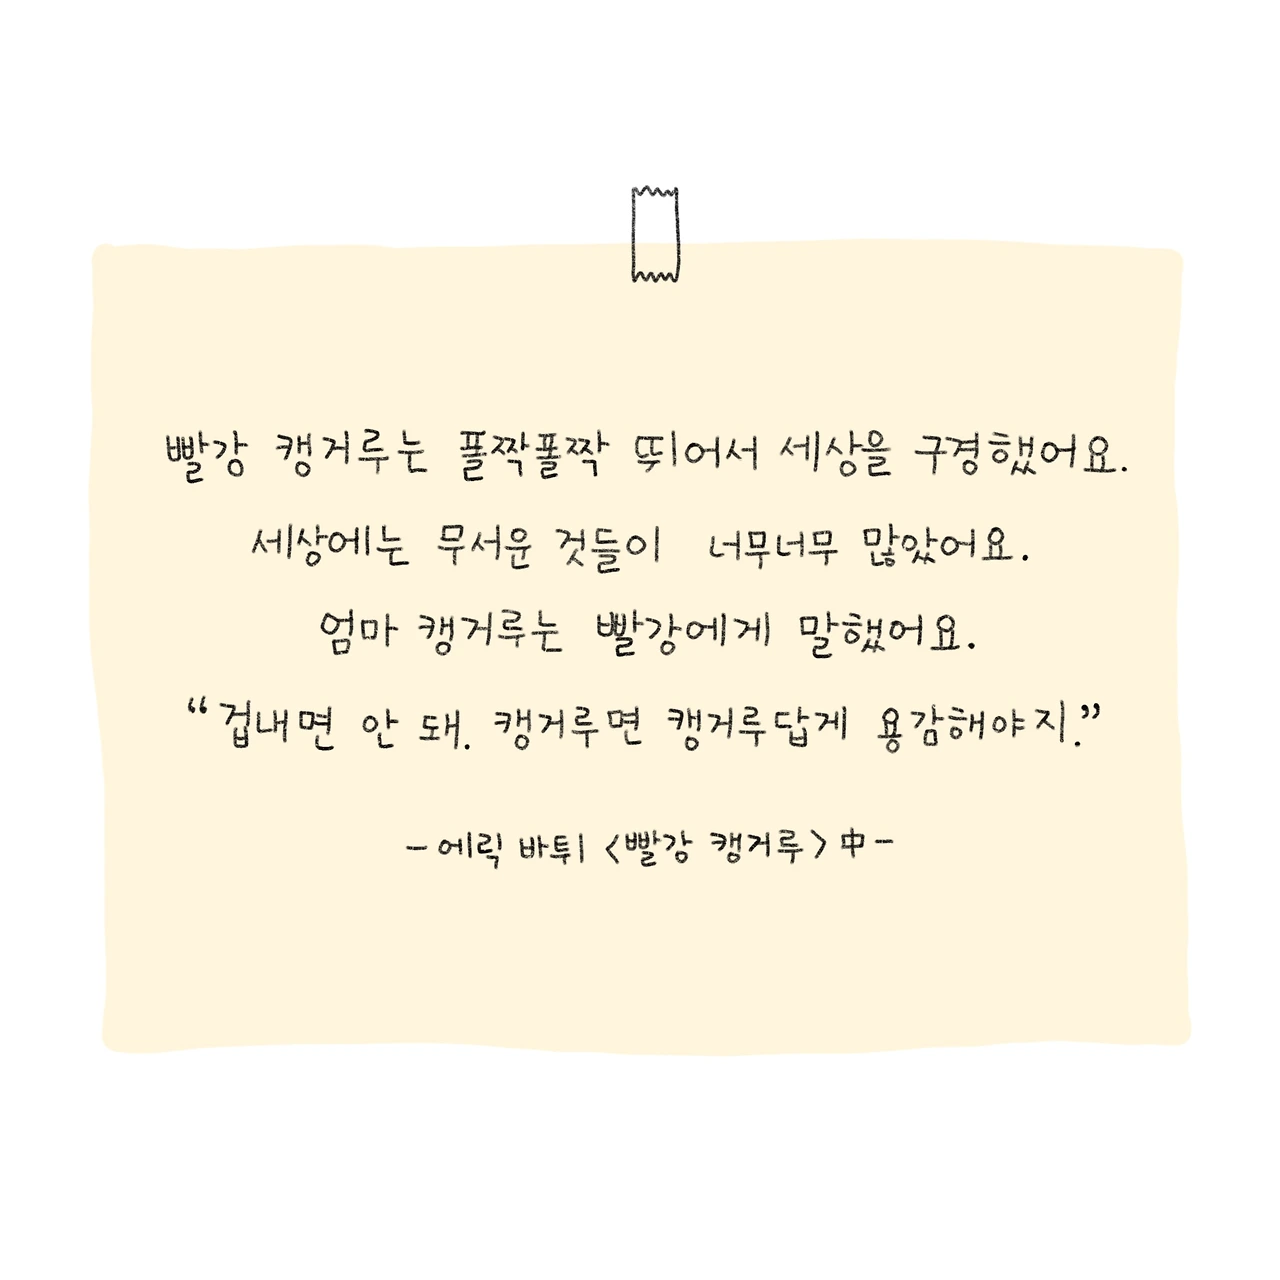 빨강 캥거루는 폴짝폴짝 뛰어서 세상을 구경했어요.
세상에는 무서운 것들이 너무너무 많았어요.
엄마 캥거루는 빨강에게 말했어요.
“겁내면 안 돼. 캥거루면 캥거루답게 용감해야지.”
- 에릭 바튀 <빨강 캥거루> 中 -